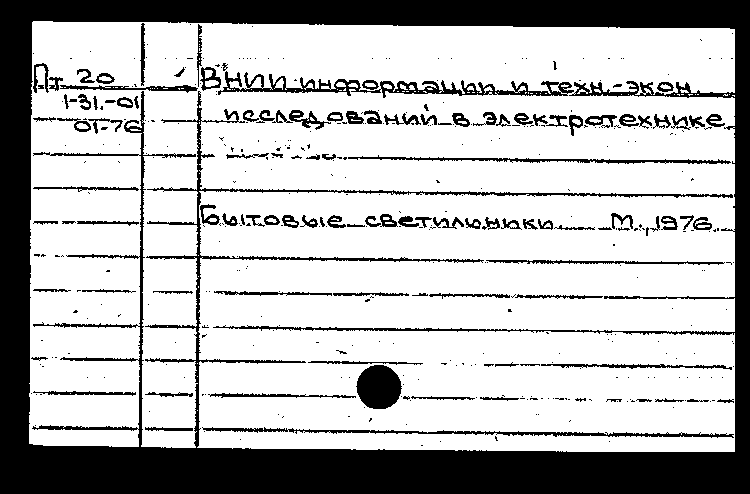 Пт 20
1-31.-01
01-76
ВНИИ информации и техн.-экон.
исследований в электротехнике.
Бытовые светильники. М., 1976.